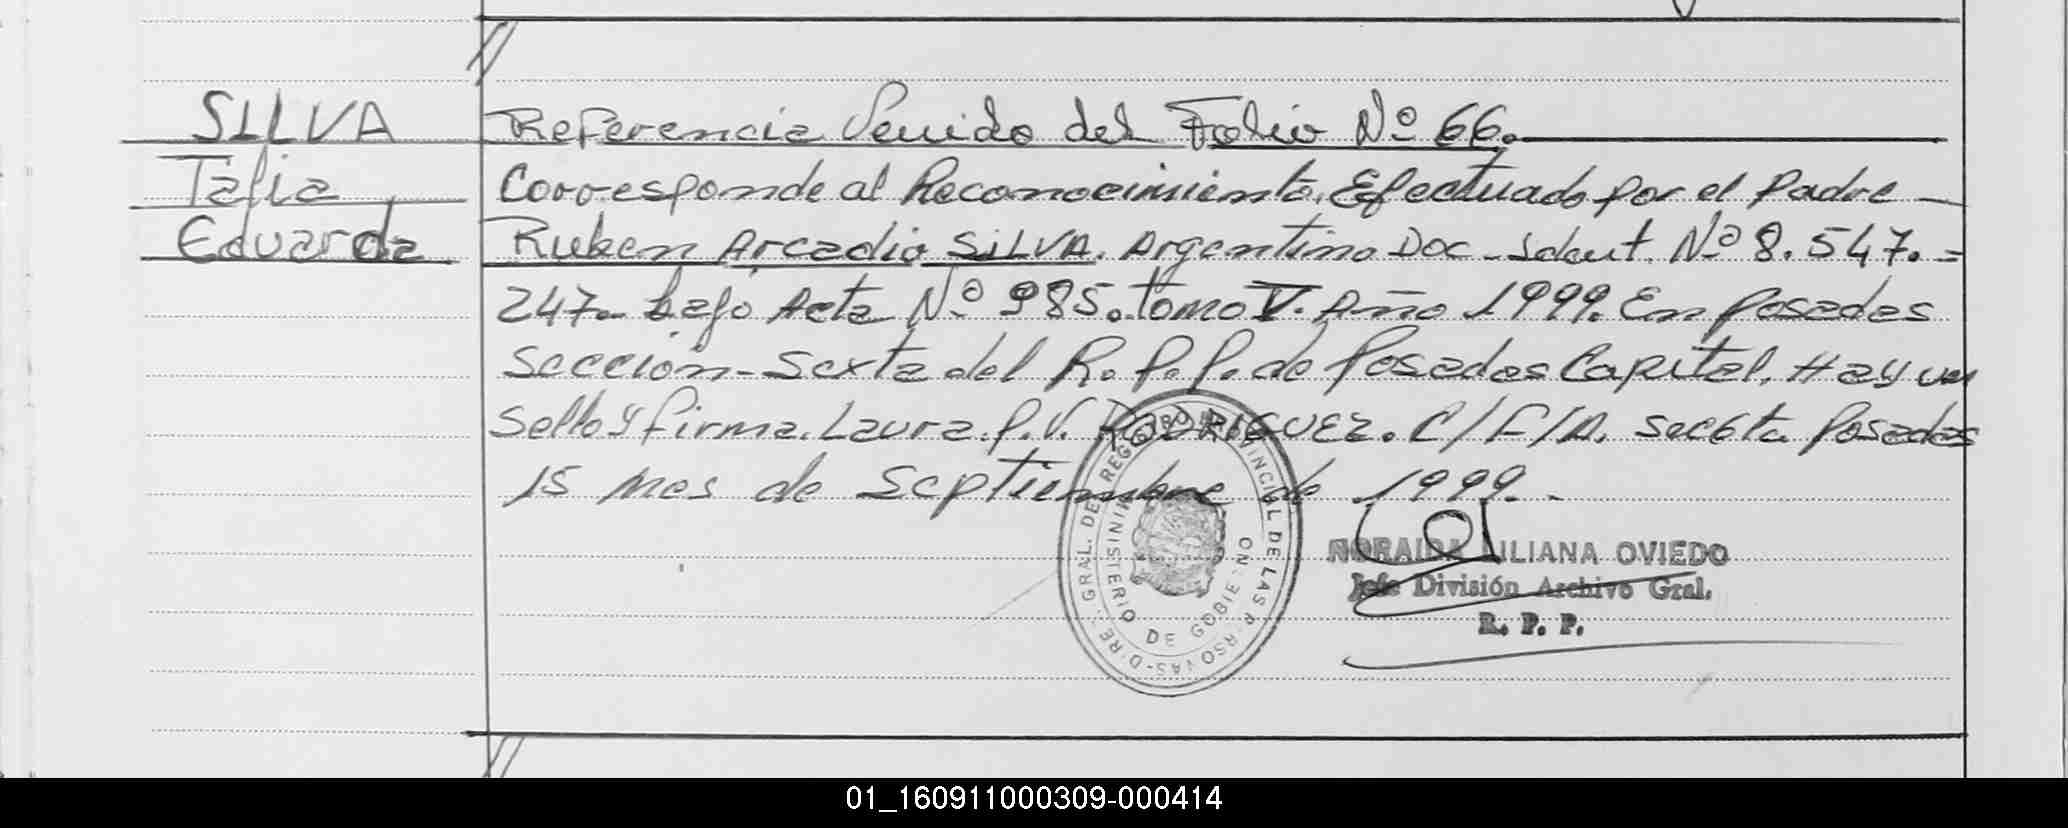 SILVA
Tafia
Eduarda
Referencia Venido del Folio Nº 66.
Corresponde al Reconocimiento, Efectuado por el Padre
Ruben Arcadio SILVA. Argentino Doc-Ident. Nº 8.547.=
247.- bajo Acta Nº 985. tomo V. Año 1999. En Posadas
Sección-Sexta del R.P.P. de Posadas Capital, Hay un
Sello y firma. Laura.P.V. RODRIGUEZ. C/F/A. Posadas
15 Mes de Septiembre de 1999.-
DIRE. GRAL. DEL REGISTRO PROVINCIAL DE LAS PERSONAS-
MINISTERIO DE GOBIERNO
NORAIDA LILIANA OVIEDO
Jefe División Archivo Gral.
R. P. P.
01_160911000309-000414